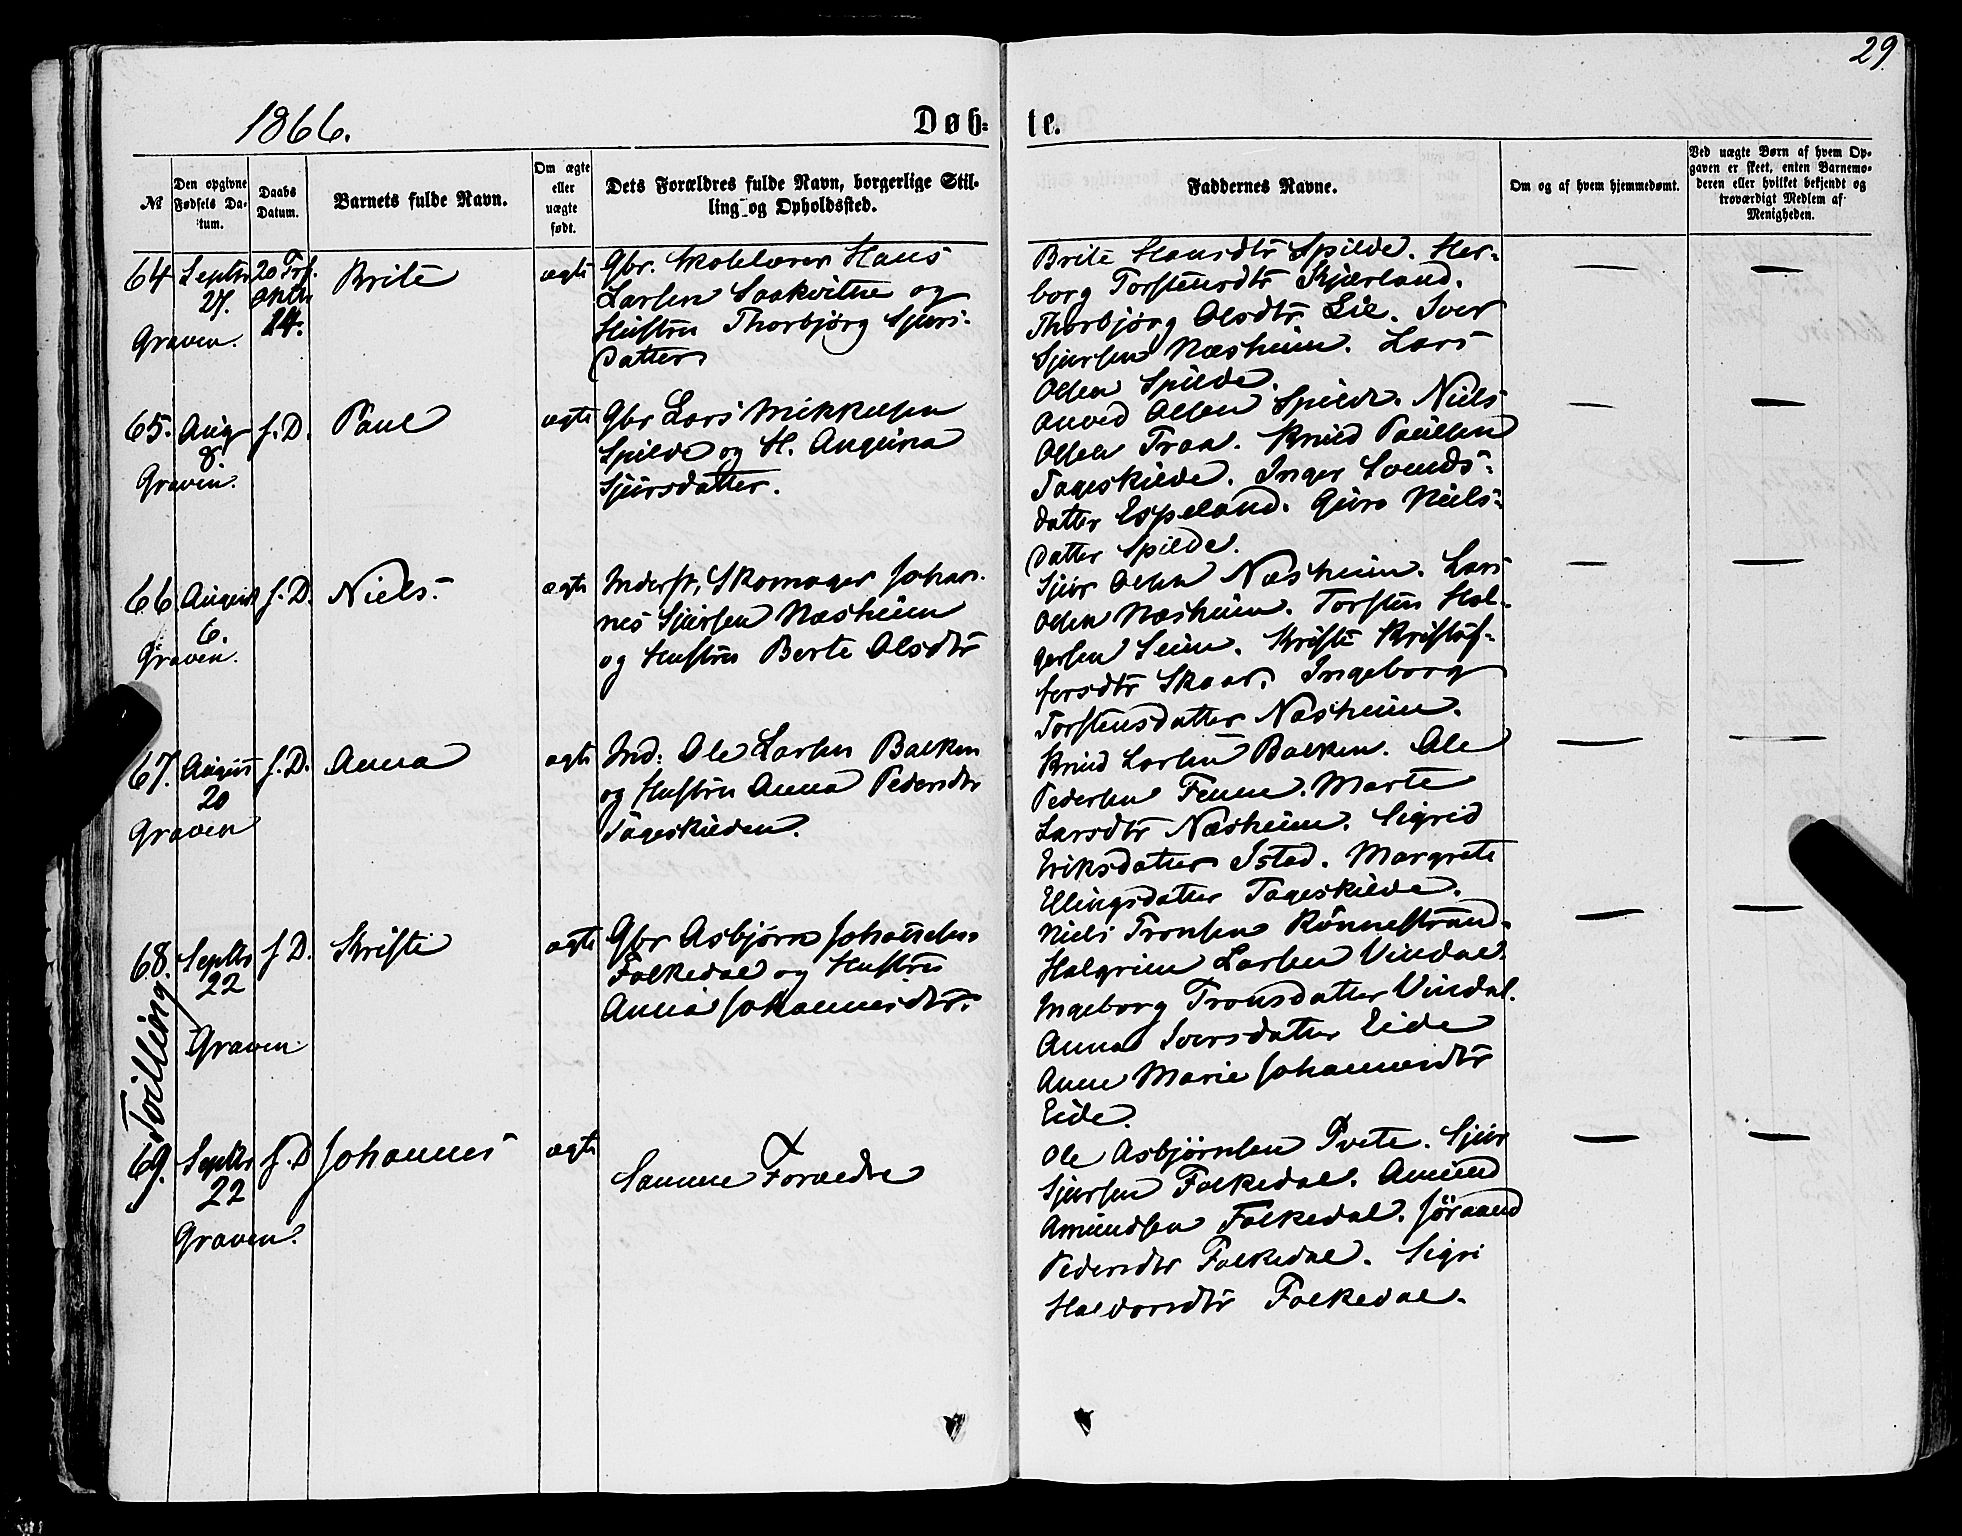 29
1866.
Døb-
te.
№
Den opgivne Fødsels Da-
tum.
Daabs Datum.
Barnets fulde Navn.
Om ægte eller uægte født.
Dets Forældres fulde Navn, borgerlige Stil-
ling og Opholdssted.
Faddernes Navne.
Om og af hvem hjemmedømt.
Ved uægte Børn af hvem Op-
gaven er skeet, enten Barnemo-
deren eller hvilket bekjendt og
troværdigt Medlem af
Menigheden.
64 Septbr 27. Graven.
20 Trf. Oktbr 14.
Brite
ægte
Gbr. Skolelærer Hans
Larsen Saakvitne og
Hustru Thorbjørg Sjurs-
datter
Brite Hansdtr Spilde. Her-
borg Torstensdtr Kjærland.
Thorbjørg Olsdtr Lie. Iver
Sjursen Næsheim. Lars
Olsen Spilde.
65. Aug 8 Graven.
f. D.
Paul
ægte
Gbr Lars Mikkelsen
Spilde og H. Angunna
Sjursdatter.
Olsen Spilde. Niels
Olsen Traa. Knud Paulsen
Tageskilde. Inger Svends-
datter Espeland. Guro Niels-
datter Spilde.
66 August 6. Graven.
f. D.
Niels.
ægte
Inderst, Skomager Johan-
nes Sjursen Næsheim
og Hustru Berte Olsdtr
Sjur Olsen Næsheim. Lars
Olsen Næsheim. Torsten Hol-
gersen Seim. Kristi Kristof-
fersdtr Skaar. Ingeborg
Torstensdatter Næsheim.
67. August 20 Graven
f. D.
Anna
ægte
Ind: Ole Larsen Bakken
og Hustru Anna Pedersdtr
Tageskilden.
Knud Larsen Bakken. Ole
Pedersen Fenne. Marte
Larsdtr Næsheim. Sigrid
Eriksdatter Istad. Margrete
Ellingsdatter Tageskilde.
68. Septbr 22 Graven
Tvilling
f. D.
Kristi
ægte
Gbr Asbjørn Johannesen
Folkedal og Hustru
Anna Johannesdtr.
Niels Tronsen Rønnestrand.
Halgrim Larsen Vindal.
Ingeborg Tronsdatter Vindal.
Anna Iversdatter Eide
Anne Marie Johannesdtr
Eide.
69. Septbr 22 Graven.
f. D
Johannes
ægte
Samme Forældre
Ole Asbjørnsen Tvete. Sjur
Sjursen Folkedal. Amund
Amundsen Folkedal. Jøraand
Pedersdtr Folkedal. Sigri
Haldorsdtr Folkedal.